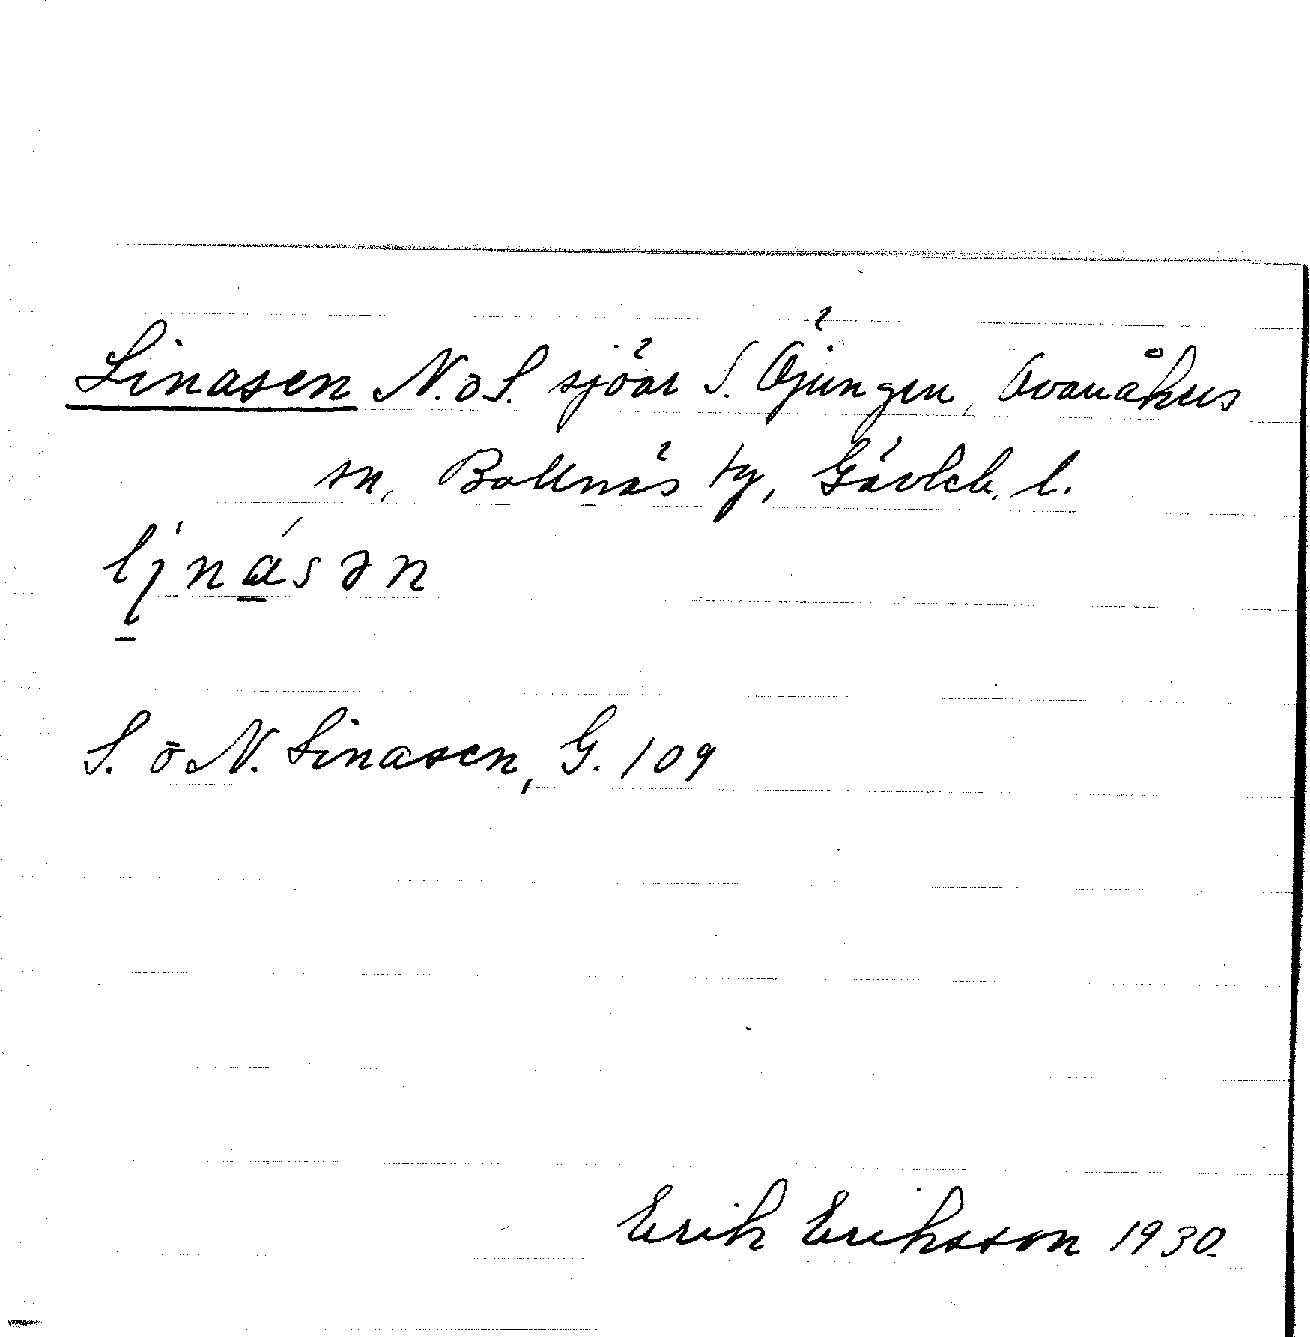 Linasen N. o S. sjöar S. Öjungen, Ovanåkers
sn, Bollnäs tg, Gävleb. l.
S. o N. Linasen, G. 109
Erik Eriksson 1930